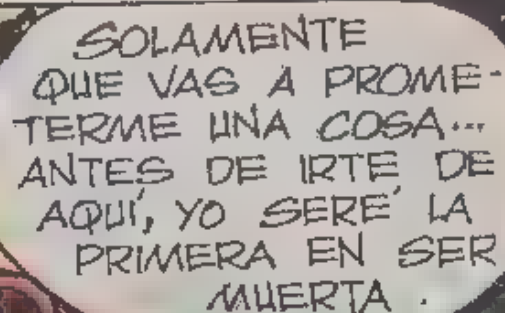 SOLAMENTE
QUE VAS A PROME-
TERME UNA COSA...
ANTES DE IRTE DE
AQUÍ, YO SERÉ LA
PRIMERA EN SER
MUERTA.